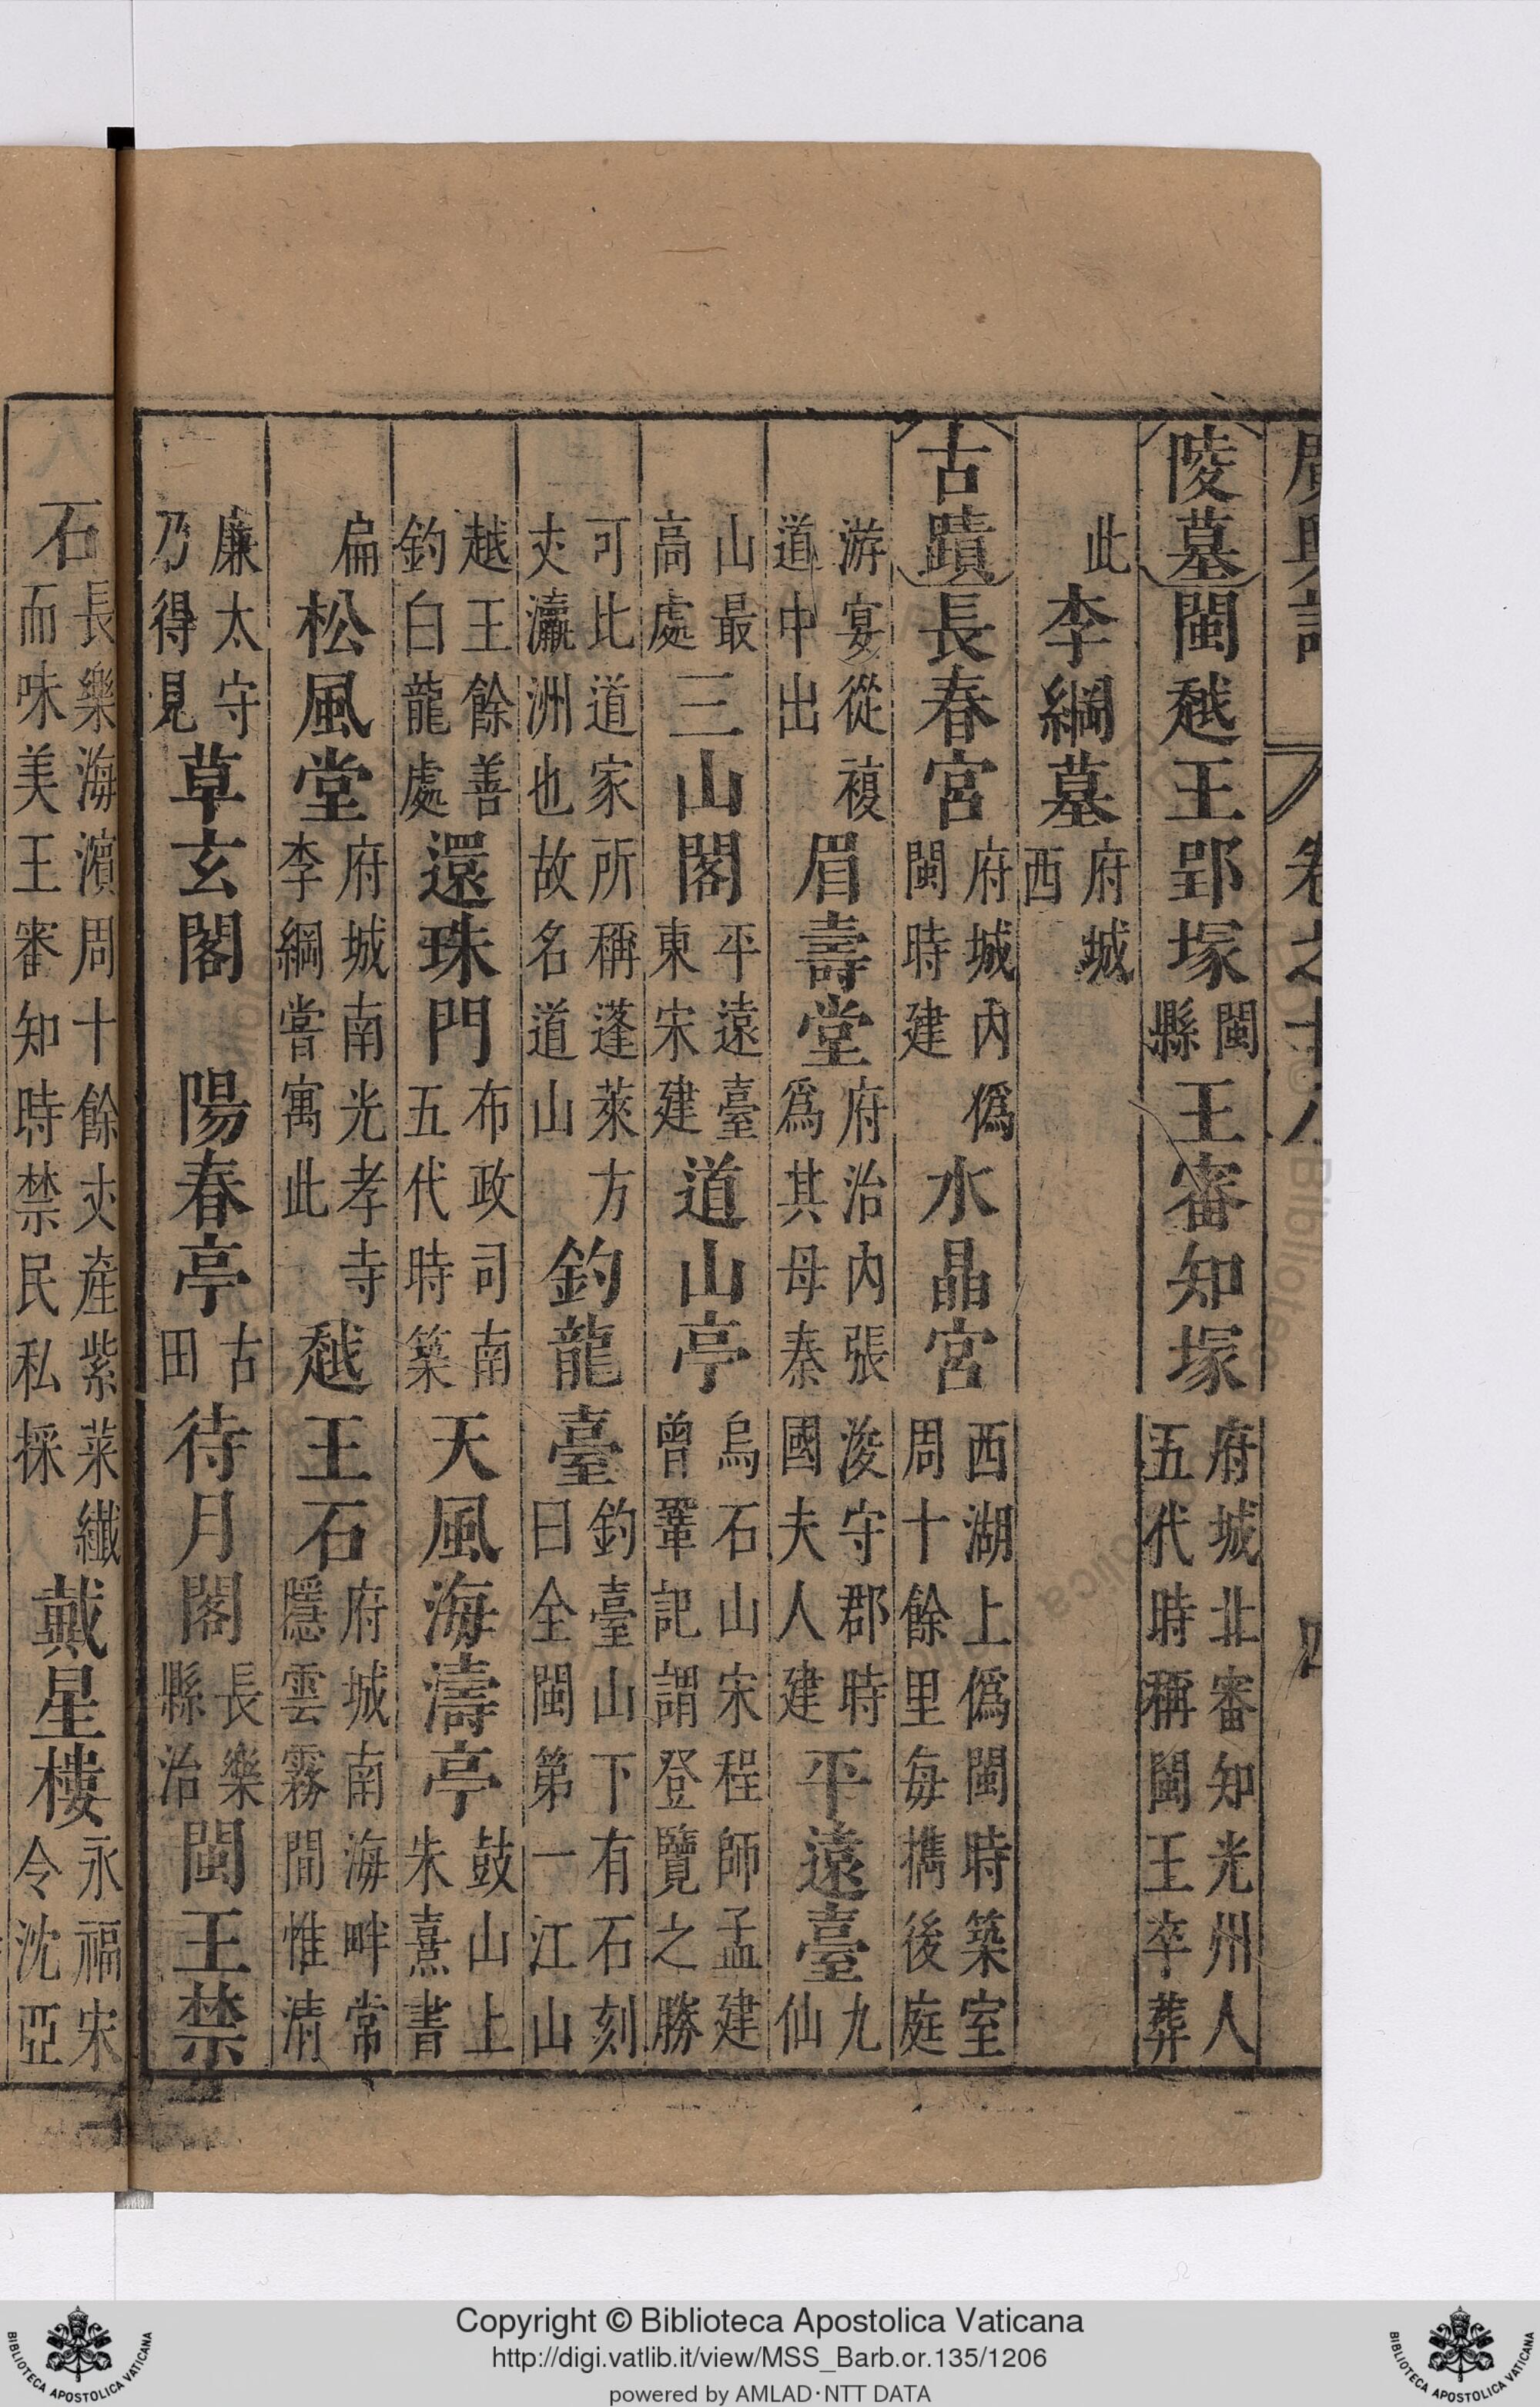 廣輿記 卷之十八 四
陵墓 閩越王郢塚 閩縣 王審知塚 府城北審知光州人五代時稱閩王卒葬
此 李綱墓 府城西
古蹟 長春宮 府城內僞閩時建 水晶宮 西湖上僞閩時築室周十餘里每攜後庭
游宴從複道中出 眉壽堂 府治內張浚守郡時爲其母秦國夫人建 平遠臺 九仙
山最高處 三山閣 平遠臺東宋建 道山亭 烏石山宋程師孟建曾鞏記謂登覽之勝
可比道家所稱蓬萊方丈瀛洲也故名道山 釣龍臺 釣臺山下有石刻曰全閩第一江山
越王餘善釣白龍處 還珠門 布政司南五代時築 天風海濤亭 鼓山上朱熹書
扁 松風堂 府城南光孝寺李綱嘗寓此 越王石 府城南海畔常隱雲霧間惟清
廉太守乃得見 草玄閣 陽春亭 古田 待月閣 長樂縣治 閩王禁
石 長樂海濱周十餘丈產紫菜纖而味美王審知時禁民私採 戴星樓 永福宋令沈亞
Copyright © Biblioteca Apostolica Vaticana
http://digi.vatlib.it/view/MSS_Barb.or.135/1206
powered by AMLAD·NTT DATA
BIBLIOTECA APOSTOLICA VATICANA
BIBLIOTECA APOSTOLICA VATICANA